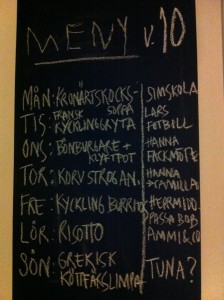 MENY v.10
MÅN: KRONÄRTSKOCKS- SIMSKOLA
SOPPA
TIS: FRANSK KYCKLINGGRYTA LARS FOTBOLL
ONS: BÖNBURGARE + KLYFTPOT HANNA FACKMÖTE
TOR: KORV STROGAN. HANNA → CAMILLA
FRE: KYCKLING BURRITO HERRMIDD. PASSA BOB
LÖR: RISOTTO AMMI & CO
SÖN: GREKISK KÖTTFÄRSLIMPA TUNA?